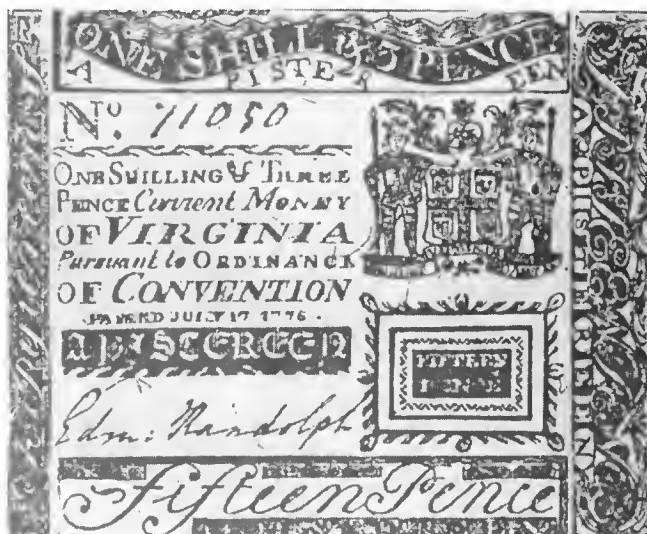 ONE SHILL & 3 PENCE
A PISTEREEN
No. 71050
ONE SHILLING & THREE
PENCE Current MONEY
OF VIRGINIA
Pursuant to ORDINANCE
OF CONVENTION
PASSED JULY 17 1775.
A PISTEREEN
FIFTEEN
PENCE
Edm: Randolph
Fifteen Pence
A PISTEREEN